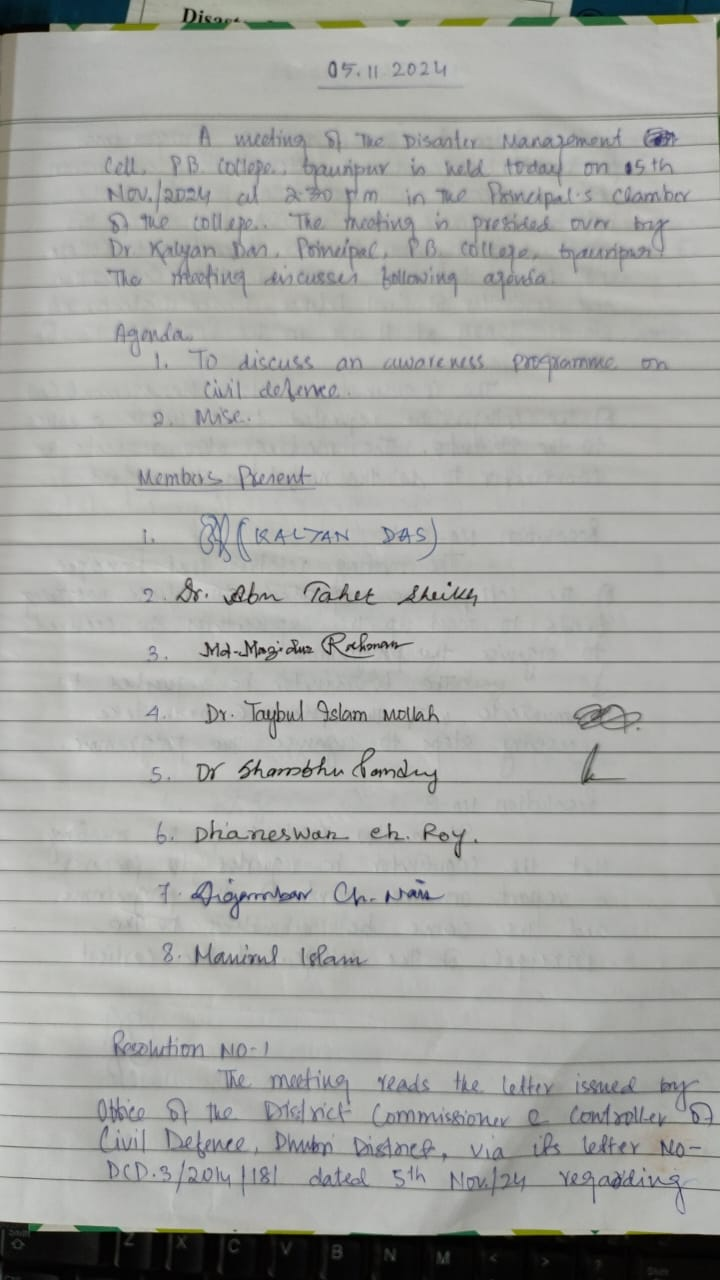 Disas
05.11.2024
A meeting of the Disaster Management
Cell, P.B. College, Gauripur is held today on 05th
Nov./2024 at 2:30 pm in the Principal's Chamber
of the college. The meeting is presided over by
Dr. Kalyan Das, Principal, P.B. College, Gauripur.
The meeting discusses following agenda.
Agenda.
1. To discuss an awareness programme on
Civil defence.
2. Misc.
Members Present
1. (KALYAN DAS)
2. Dr. Abu Taher Sheikh
3. Md. Mazidur Rahman
4. Dr. Taybul Islam Mollah
5. Dr Shambhu Pandey
6. Dhaneswar ch. Roy.
7. Digambar Ch. Nath
8. Manirul Islam
Resolution NO-1
The meeting reads the letter issued by
Office of the District Commissioner & Controller of
Civil Defence, Dhubri District, via its letter No-
DCD.3/2014/181 dated 5th Nov./24 regarding
Z X C V B N M